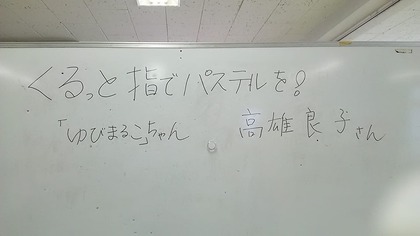 くるっと指でパステルを!
「ゆびまるこ」ちゃん 高雄良子さん